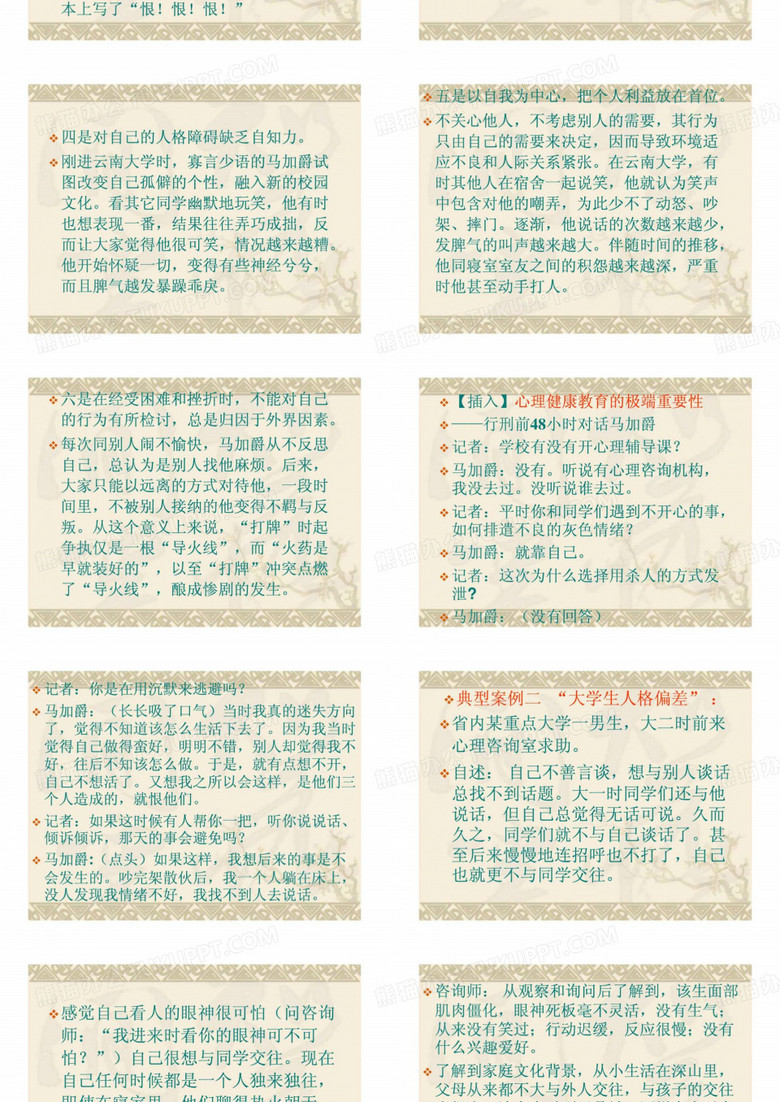 本上写了“恨！恨！恨！”
四是对自己的人格障碍缺乏自知力。
刚进云南大学时，寡言少语的马加爵试
图改变自己孤僻的个性，融入新的校园
文化。看其它同学幽默地玩笑，他有时
也想表现一番，结果往往弄巧成拙，反
而让大家觉得他很可笑，情况越来越糟。
他开始怀疑一切，变得有些神经兮兮，
而且脾气越发暴躁乖戾。
五是以自我为中心，把个人利益放在首位。
不关心他人，不考虑别人的需要，其行为
只由自己的需要来决定，因而导致环境适
应不良和人际关系紧张。在云南大学，有
时其他人在宿舍一起说笑，他就认为笑声
中包含对他的嘲弄，为此少不了动怒、吵
架、摔门。逐渐，他说话的次数越来越少，
发脾气的叫声越来越大。伴随时间的推移，
他同寝室室友之间的积怨越来越深，严重
时他甚至动手打人。
六是在经受困难和挫折时，不能对自己
的行为有所检讨，总是归因于外界因素。
每次同别人闹不愉快，马加爵从不反思
自己，总认为是别人找他麻烦。后来，
大家只能以远离的方式对待他，一段时
间里，不被别人接纳的他变得不羁与反
叛。从这个意义上来说，“打牌”时起
争执仅是一根“导火线”，而“火药是
早就装好的”，以至“打牌”冲突点燃
了“导火线”，酿成惨剧的发生。
【插入】心理健康教育的极端重要性
——行刑前48小时对话马加爵
记者：学校有没有开心理辅导课？
马加爵：没有。听说有心理咨询机构，
我没去过。没听说谁去过。
记者：平时你和同学们遇到不开心的事，
如何排遣不良的灰色情绪？
马加爵：就靠自己。
记者：这次为什么选择用杀人的方式发
泄？
马加爵：（没有回答）
记者：你是在用沉默来逃避吗？
马加爵：（长长吸了口气）当时我真的迷失方向
了，觉得不知道该怎么生活下去了。因为我当时
觉得自己做得蛮好，明明不错，别人却觉得我不
好，往后不知该怎么做。于是，就有点想不开，
自己不想活了。又想我之所以会这样，是他们三
个人造成的，就恨他们。
记者：如果这时候有人帮你一把，听你说说话、
倾诉倾诉，那天的事会避免吗？
马加爵:（点头）如果这样，我想后来的事是不
会发生的。吵完架散伙后，我一个人躺在床上，
没人发现我情绪不好，我找不到人去说话。
典型案例二 “大学生人格偏差”：
省内某重点大学一男生，大二时前来
心理咨询室求助。
自述： 自己不善言谈，想与别人谈话
总找不到话题。大一时同学们还与他
说话，但自己总觉得无话可说。久而
久之，同学们就不与自己谈话了。甚
至后来慢慢地连招呼也不打了，自己
也就更不与同学交往。
感觉自己看人的眼神很可怕（问咨询
师：“我进来时看你的眼神可不可
怕？”）自己很想与同学交往。现在
自己任何时候都是一个人独来独往，
咨询师： 从观察和询问后了解到，该生面部
肌肉僵化，眼神死板毫不灵活，没有生气；
从来没有笑过；行动迟缓，反应很慢；没有
什么兴趣爱好。
了解到家庭文化背景，从小生活在深山里，
父母从来都不大与外人交往，与孩子的交往